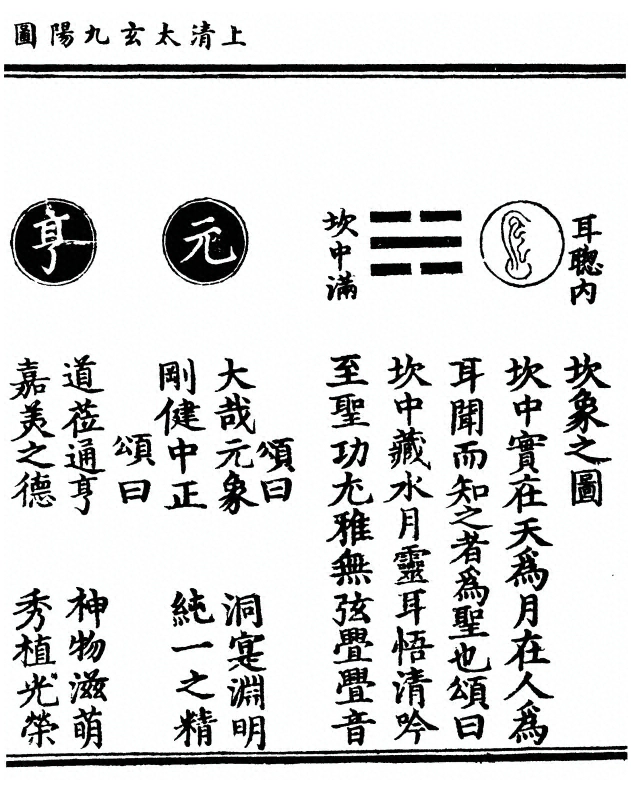 上清太玄九陽圖
耳聦内
坎中滿
坎象之圖
坎中實在天爲月在人爲
耳聞而知之者爲聖也頌曰
坎中藏水月靈耳悟清吟
至聖功尤雅無弦疊疊音
元
頌曰
大哉元象 洞寔淵明
剛健中正 純一之精
亨
頌曰
道蒞通亨 神物滋萌
嘉美之德 秀植光榮